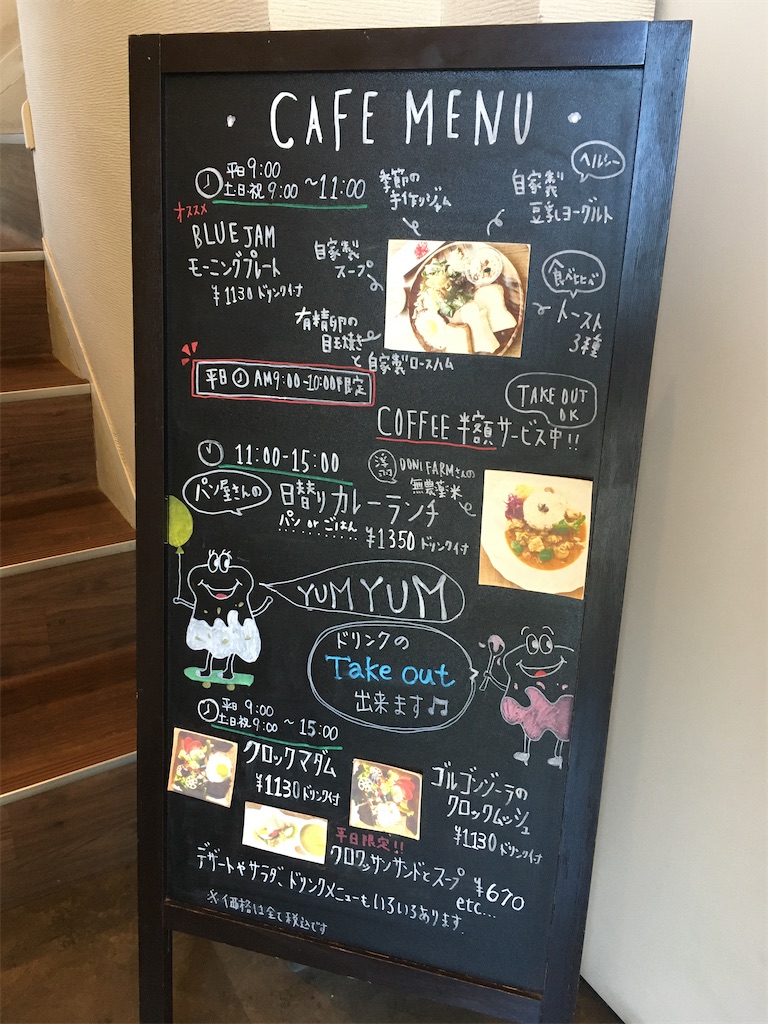 ・CAFE MENU・
平日 9:00
土日祝 9:00 ~11:00
オススメ
BLUE JAM
モーニングプレート
¥1130 ドリンク付
季節の
手作りジャム
ヘルシー
自家製
豆乳ヨーグルト
自家製
スープ
食べヒヒべ
トースト
3種
有精卵の
目玉焼き
と自家製ロースハム
平日 AM9:00-10:00限定
TAKE OUT
OK
COFFEE 半額サービス中!!
11:00-15:00
DONI FARMさんの
無農薬米
パン屋さんの
日替りカレーランチ
パン or ごはん
¥1350 ドリンク付
YUM YUM
ドリンクの
Take out
出来ます♫
平日 9:00
土日祝 9:00 ~ 15:00
クロックマダム
¥1130 ドリンク付
ゴルゴンゾーラの
クロックムッシュ
¥1130 ドリンク付
平日限定!!
クロワッサンサンドとスープ ¥670
etc...
デザートやサラダ、ドリンクメニューもいろいろあります
※価格は全て税込です